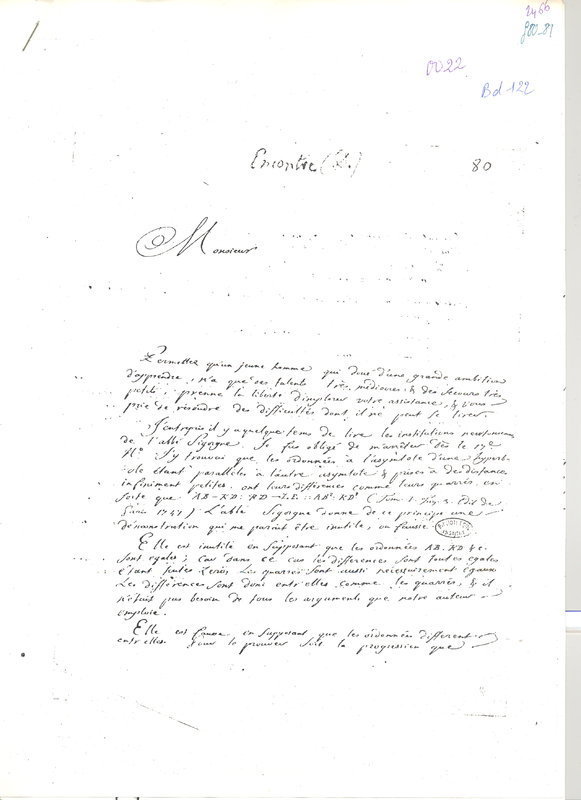 2466
g80-81
0022
Bd-122
Encontre (D.)
80
Monsieur
Permettez qu'un jeune homme qui doué d'une grande ambition
d'apprendre, n'a que des talents très médiocres & des secours très
petits, prenne la liberté d'implorer votre assistance, & vous
prie de résoudre des difficultés dont il ne peut se tirer.
J'entrepris il y a quelque tems de lire les institutions newtoniennes
de l'abbé Sigorgne. Je fus obligé de m'arrêter dès le 17e
No J'y trouvai que les ordonnées à l'asymtote d'une hyperb-
ole étant paralleles à l'autre asymtote & prises à des distances
infiniment petites, ont leurs différences comme leurs quarrés, en
sorte que AB-KD : KD-LE :: AB² : KD² (Tom. 1. fig. 2. Edit de
Paris 1747) L'abbé Sigorgne donne de ce principe une
démonstration qui me parait être inutile, ou fausse.
Elle est inutile en supposant que les ordonnées AB, KD &c.
sont égales; car dans ce cas les différences sont toutes egales
étant toutes zéros, les quarrés sont aussi nécessairement égaux
Les différences sont donc entr'elles comme les quarrés, & il
n'était pas besoin de tous les arguments que notre auteur
emploie.
Elle est fausse, en supposant que les ordonnées different
entr'elles. Pour le prouver soit la progression que